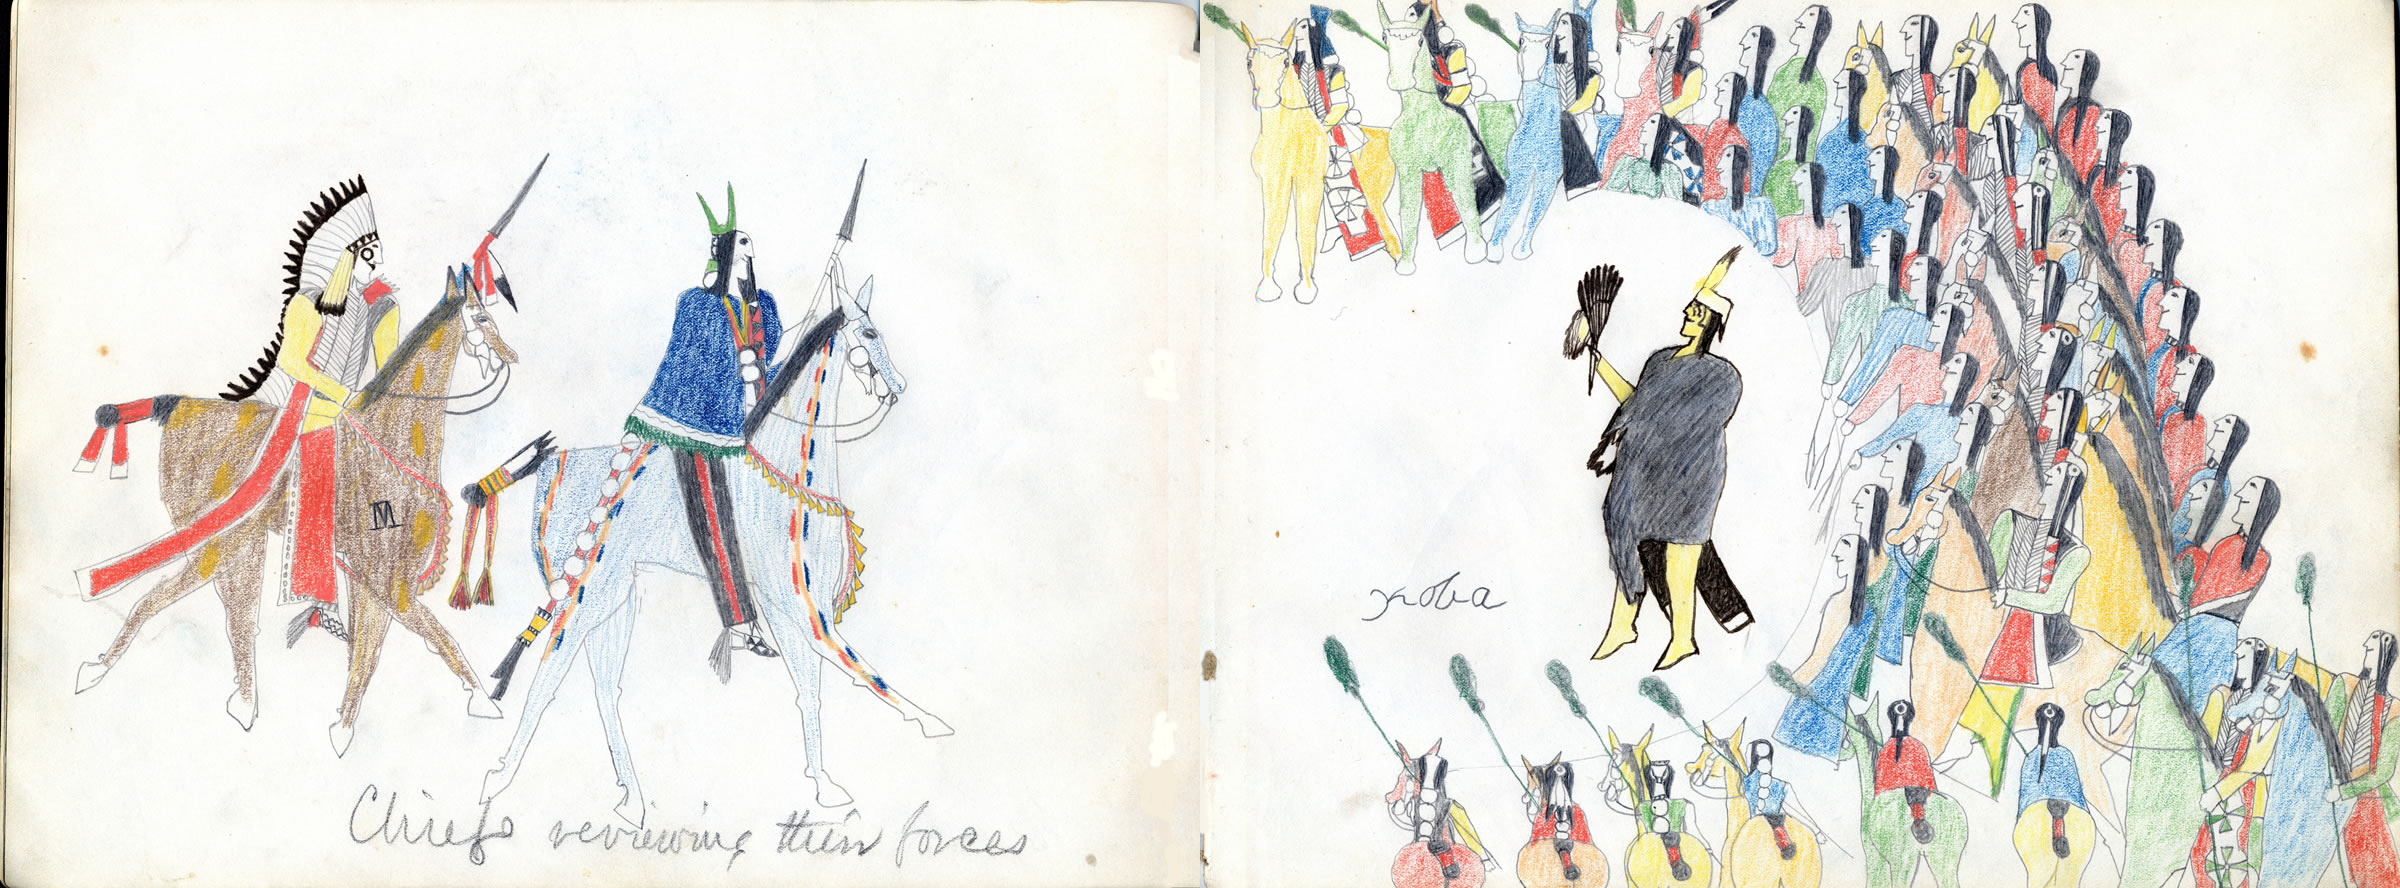 M
Chiefs reviewing their forces
Koba